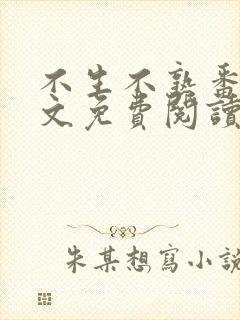 不生不熟番
文免費閱讀
朱某想寫小說